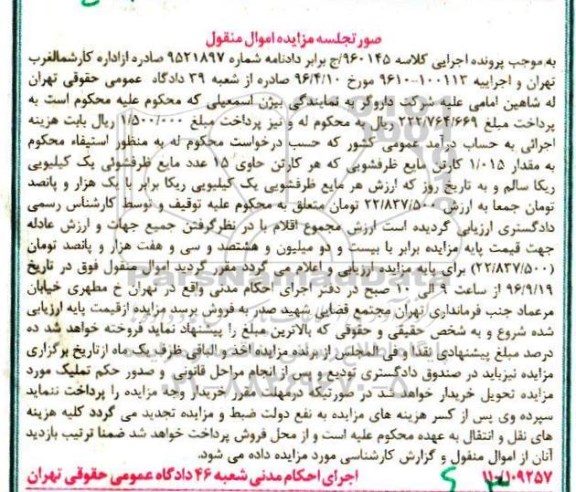 صورتجلسه مزایده اموال منقول
به موجب پرونده اجرایی کلاسه ۹۶۰۱۴۵/ج برابر دادنامه شماره ۹۵۲۱۸۹۷ صادره از اداره کار شمالغرب
تهران و اجراییه ۱۰۰۱۱۳-۹۶۱۰ مورخ ۹۶/۴/۱۰ صادره از شعبه ۳۹ دادگاه عمومی حقوقی تهران
له شاهین امامی علیه شرکت داروگر به نمایندگی بیژن اسمعیلی که محکوم علیه محکوم است به
پرداخت مبلغ ۲۲۲/۷۶۴/۶۶۹ ریال به محکوم له و نیز پرداخت مبلغ ۱/۵۰۰/۰۰۰ ریال بابت هزینه
اجرائی به حساب درآمد عمومی کشور که حسب درخواست محکوم له به منظور استیفاء محکوم
به مقدار ۱/۰۱۵ کارتن مایع ظرفشویی که هر کارتن حاوی ۱۵ عدد مایع ظرفشوئی یک کیلیویی
ریکا سالم و به تاریخ روز که ارزش هر مایع ظرفشویی یک کیلیویی ریکا برابر با یک هزار و پانصد
تومان جمعا به ارزش ۲۲/۸۳۷/۵۰۰ تومان متعلق به محکوم علیه توقیف و توسط کارشناس رسمی
دادگستری ارزیابی گردیده است ارزش مجموع اقلام با در نظرگرفتن جمیع جهات و ارزش عادله
جهت قیمت پایه مزایده برابر با بیست و دو میلیون و هشتصد و سی و هفت هزار و پانصد تومان
(۲۲/۸۳۷/۵۰۰) برای پایه مزایده ارزیابی و اعلام می گردد مقرر گردید اموال منقول فوق در تاریخ
۹۶/۹/۱۹ از ساعت ۹ الی ۱۰ صبح در دفتر اجرای احکام مدنی واقع در تهران خ مطهری خیابان
میرعماد جنب فرمانداری تهران مجتمع قضایی شهید صدر به فروش برسد مزایده از قیمت پایه ارزیابی
شده شروع و به شخص حقیقی و حقوقی که بالاترین مبلغ را پیشنهاد نماید فروخته خواهد شد ده
درصد مبلغ پیشنهادی نقدا و فی المجلس از برنده مزایده اخذ و الباقی ظرف یک ماه از تاریخ برگزاری
مزایده نیز باید در صندوق دادگستری تودیع و پس از انجام مراحل قانونی و صدور حکم تملیک مورد
مزایده تحویل خریدار خواهد شد در صورتیکه در مهلت مقرر خریدار وجه مزایده را پرداخت ننماید
سپرده وی پس از کسر هزینه های مزایده به نفع دولت ضبط و مزایده تجدید می گردد کلیه هزینه
های نقل و انتقال به عهده محکوم علیه است و از محل فروش پرداخت خواهد شد ضمنا ترتیب بازدید
آنان از اموال منقول و گزارش کارشناسی مورد مزایده داده می شود.
۱۱۰/۱۰۹۲۵۷ اجرای احکام مدنی شعبه ۴۶ دادگاه عمومی حقوقی تهران